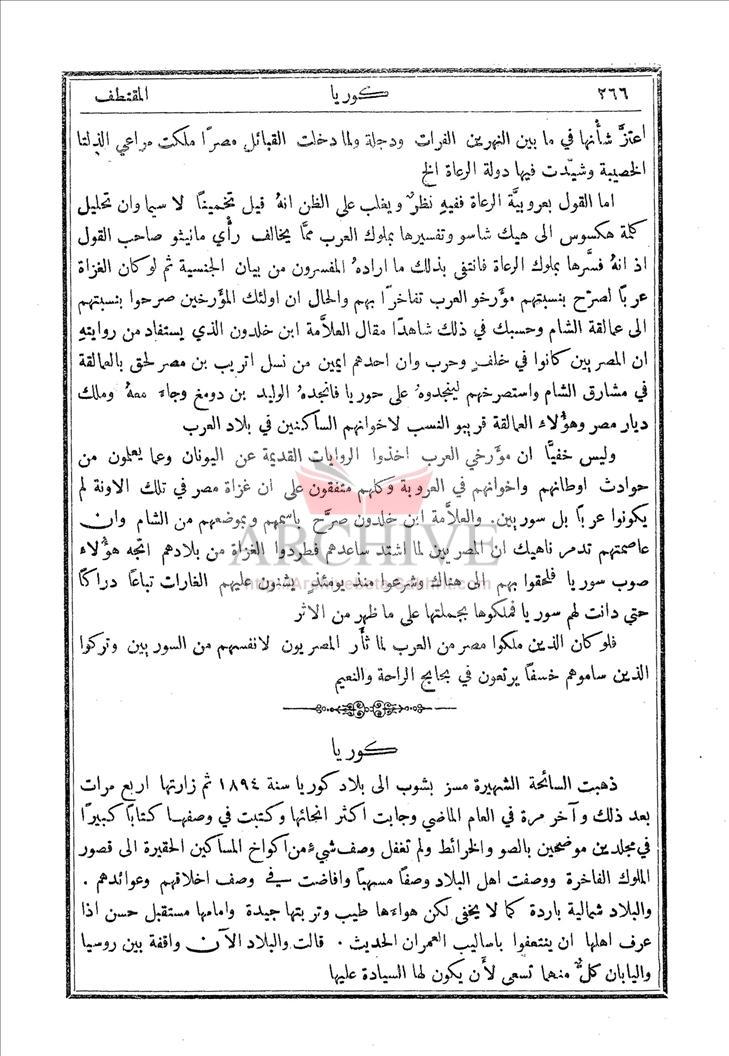 ٢٦٦ كوريا المقتطف
اعتزَّ شأنها في ما بين النهرين الفرات ودجلة ولما دخلت القبائل مصرًا ملكت مراعي الدلتا
الخصيبة وشيّدت فيها دولة الرعاة الخ
اما القول بعروبيَّة الرعاة ففيهِ نظرٌ ويغلب على الظن انهُ قيل تخمينًا لا سيما وان تحليل
كلمة هكسوس الى هيك شاسو وتفسيرها بملوك العرب ممَّا يخالف رأي مانيثو صاحب القول
اذ انهُ فسَّرها بملوك الرعاة فانتفى بذلك ما ارادهُ المفسرون من بيان الجنسية ثم لو كان الغزاة
عربًا لصرَّح بنسبتهم مؤَرخو العرب تفاخرًا بهم والحال ان اولئك المؤَرخين صرحوا بنسبتهم
الى عمالقة الشام وحسبك في ذلك شاهدًا مقال العلاَّمة ابن خلدون الذي يستفاد من روايتهِ
ان المصريين كانوا في خلفٍ وحرب وان احدهم ايمين من نسل اتريب بن مصر لحق بالعمالقة
في مشارق الشام واستصرخهم لينجدوهُ على حوريا فانجدهُ الوليد بن دومغ وجاءَ معهُ وملك
ديار مصر وهؤُلاء العمالقة قريبو النسب لاخوانهم الساكنين في بلاد العرب
وليس خفيًّا ان مؤَرخي العرب اخذوا الروايات القديمة عن اليونان وعما يعلمون من
حوادث اوطانهم واخوانهم في العروبة وكلهم متفقون على ان غزاة مصر في تلك الاونة لم
يكونوا عربًا بل سوريين. والعلاَّمة ابن خلدون صرَّح باسمهم وبموضعهم من الشام وان
عاصمتهم تدمر ناهيك ان المصريين لما اشتد ساعدهم فطردوا الغزاة من بلادهم اتجه هؤُلاء
صوب سوريا فلحقوا بهم الى هناك وشرعوا منذ يومئذٍ يشنون عليهم الغارات تباعًا دراكًا
حتى دانت لهم سوريا فملكوها بجملتها على ما ظهر من الاثر
فلو كان الذين ملكوا مصر من العرب لما ثأر المصريون لانفسهم من السوريين وتركوا
الذين ساموهم خسفًا يرتعون في بحابح الراحة والنعيم
كوريا
ذهبت السائحة الشهيرة مسز بشوب الى بلاد كوريا سنة ١٨٩٤ ثم زارتها اربع مرات
بعد ذلك وآخر مرة في العام الماضي وجابت اكثر انحائها وكتبت في وصفها كتابًا كبيرًا
في مجلدين موضحين بالصو والخرائط ولم تغفل وصف شيءٍ من اكواخ المساكين الحقيرة الى قصور
الملوك الفاخرة ووصفت اهل البلاد وصفًا مسهبًا وافاضت في وصف اخلاقهم وعوائدهم.
والبلاد شمالية باردة كما لا يخفى لكن هواءها طيب وتربتها جيدة وامامها مستقبل حسن اذا
عرف اهلها ان ينتفعوا باساليب العمران الحديث. قالت والبلاد الآن واقفة بين روسيا
واليابان كلٌّ منهما تسعى لأن يكون لها السيادة عليها
ARCHIVE